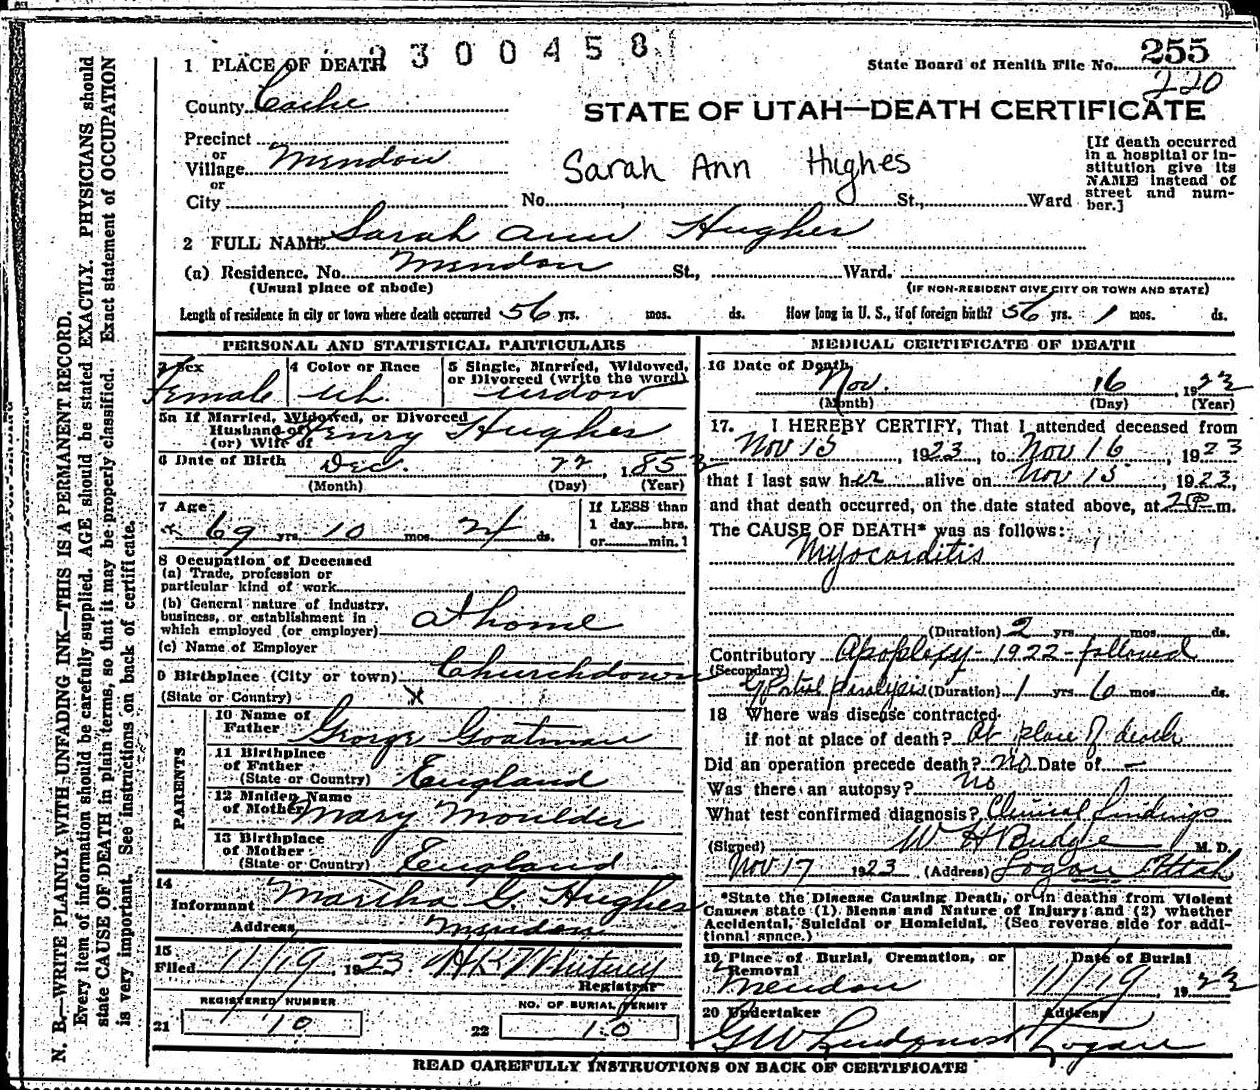 2300458
1 PLACE OF DEATH
State Board of Health File No. 255
220
County Cache
STATE OF UTAH—DEATH CERTIFICATE
Precinct
or
Village Mendon
or
City
Sarah Ann Hughes
No. St., Ward
[If death occurred
in a hospital or in-
stitution give its
NAME instead of
street and num-
ber.]
2 FULL NAME Sarah Ann Hughes
(a) Residence. No. Mendon St., Ward.
(Usual place of abode) (IF NON-RESIDENT GIVE CITY OR TOWN AND STATE)
Length of residence in city or town where death occurred 56 yrs. mos. ds. How long in U. S., if of foreign birth? 56 yrs. 1 mos. ds.
PERSONAL AND STATISTICAL PARTICULARS
3 Sex
Female
4 Color or Race
wh.
5 Single, Married, Widowed,
or Divorced (write the word)
widow
5a If Married, Widowed, or Divorced
Husband of
(or) Wife of
Henry Hughes
6 Date of Birth Dec. 22, 185
(Month) (Day) (Year)
7 Age
69 yrs. 10 mos. 24 ds.
If LESS than
1 day hrs.
or min.
8 Occupation of Deceased
(a) Trade, profession or
particular kind of work
(b) General nature of industry,
business, or establishment in
which employed (or employer)
at home
(c) Name of Employer
9 Birthplace (City or town) Churchdown
(State or Country) X
PARENTS
10 Name of
Father George Goatman
11 Birthplace
of Father
(State or Country) England
12 Maiden Name
of Mother Mary Moulder
13 Birthplace
of Mother
(State or Country) England
14
Informant Martha G. Hughes
Address Mendon
15
Filed 11/19, 1923 Whitney
Registrar
REGISTERED NUMBER
21 10
NO. OF BURIAL PERMIT
22 10
MEDICAL CERTIFICATE OF DEATH
16 Date of Death
Nov. 16, 1923
(Month) (Day) (Year)
17. I HEREBY CERTIFY, That I attended deceased from
Nov 15, 1923, to Nov 16, 1923
that I last saw her alive on Nov 15, 1923,
and that death occurred, on the date stated above, at 2 P m.
The CAUSE OF DEATH* was as follows:
Myocarditis
(Duration) 2 yrs. mos. ds.
Contributory Apoplexy - 1922 - followed
(Secondary)
by Partial Paralysis (Duration) 1 yrs 6 mos. ds.
18 Where was disease contracted
if not at place of death? At place of death
Did an operation precede death? No Date of —
Was there an autopsy? No
What test confirmed diagnosis? Clinical findings
(Signed) W H Budge M. D.
Nov 17 1923 (Address) Logan Utah
*State the Disease Causing Death, or in deaths from Violent
Causes state (1) Means and Nature of Injury; and (2) whether
Accidental, Suicidal or Homicidal. (See reverse side for addi-
tional space.)
19 Place of Burial, Cremation, or
Removal
Mendon
Date of Burial
11/19 1923
20 Undertaker
G W Lindquist
Address
Logan
READ CAREFULLY INSTRUCTIONS ON BACK OF CERTIFICATE
N. B.—WRITE PLAINLY WITH UNFADING INK—THIS IS A PERMANENT RECORD.
Every item of information should be carefully supplied. AGE should be stated EXACTLY. PHYSICIANS should
state CAUSE OF DEATH in plain terms, so that it may be properly classified. Exact statement of OCCUPATION
is very important. See instructions on back of certificate.